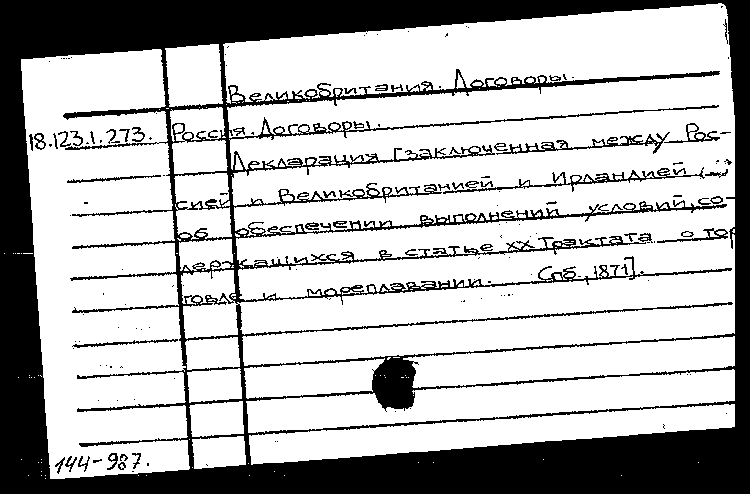 Великобритания. Договоры.
18.123.1.273. Россия. Договоры.
Декларация [заключенная между Рос-
сией и Великобританией и Ирландией (...)
об обеспечении выполнений условий, со-
держащихся в статье XX Трактата о тор
говле и мореплавании. Спб., 1871].
144-987.